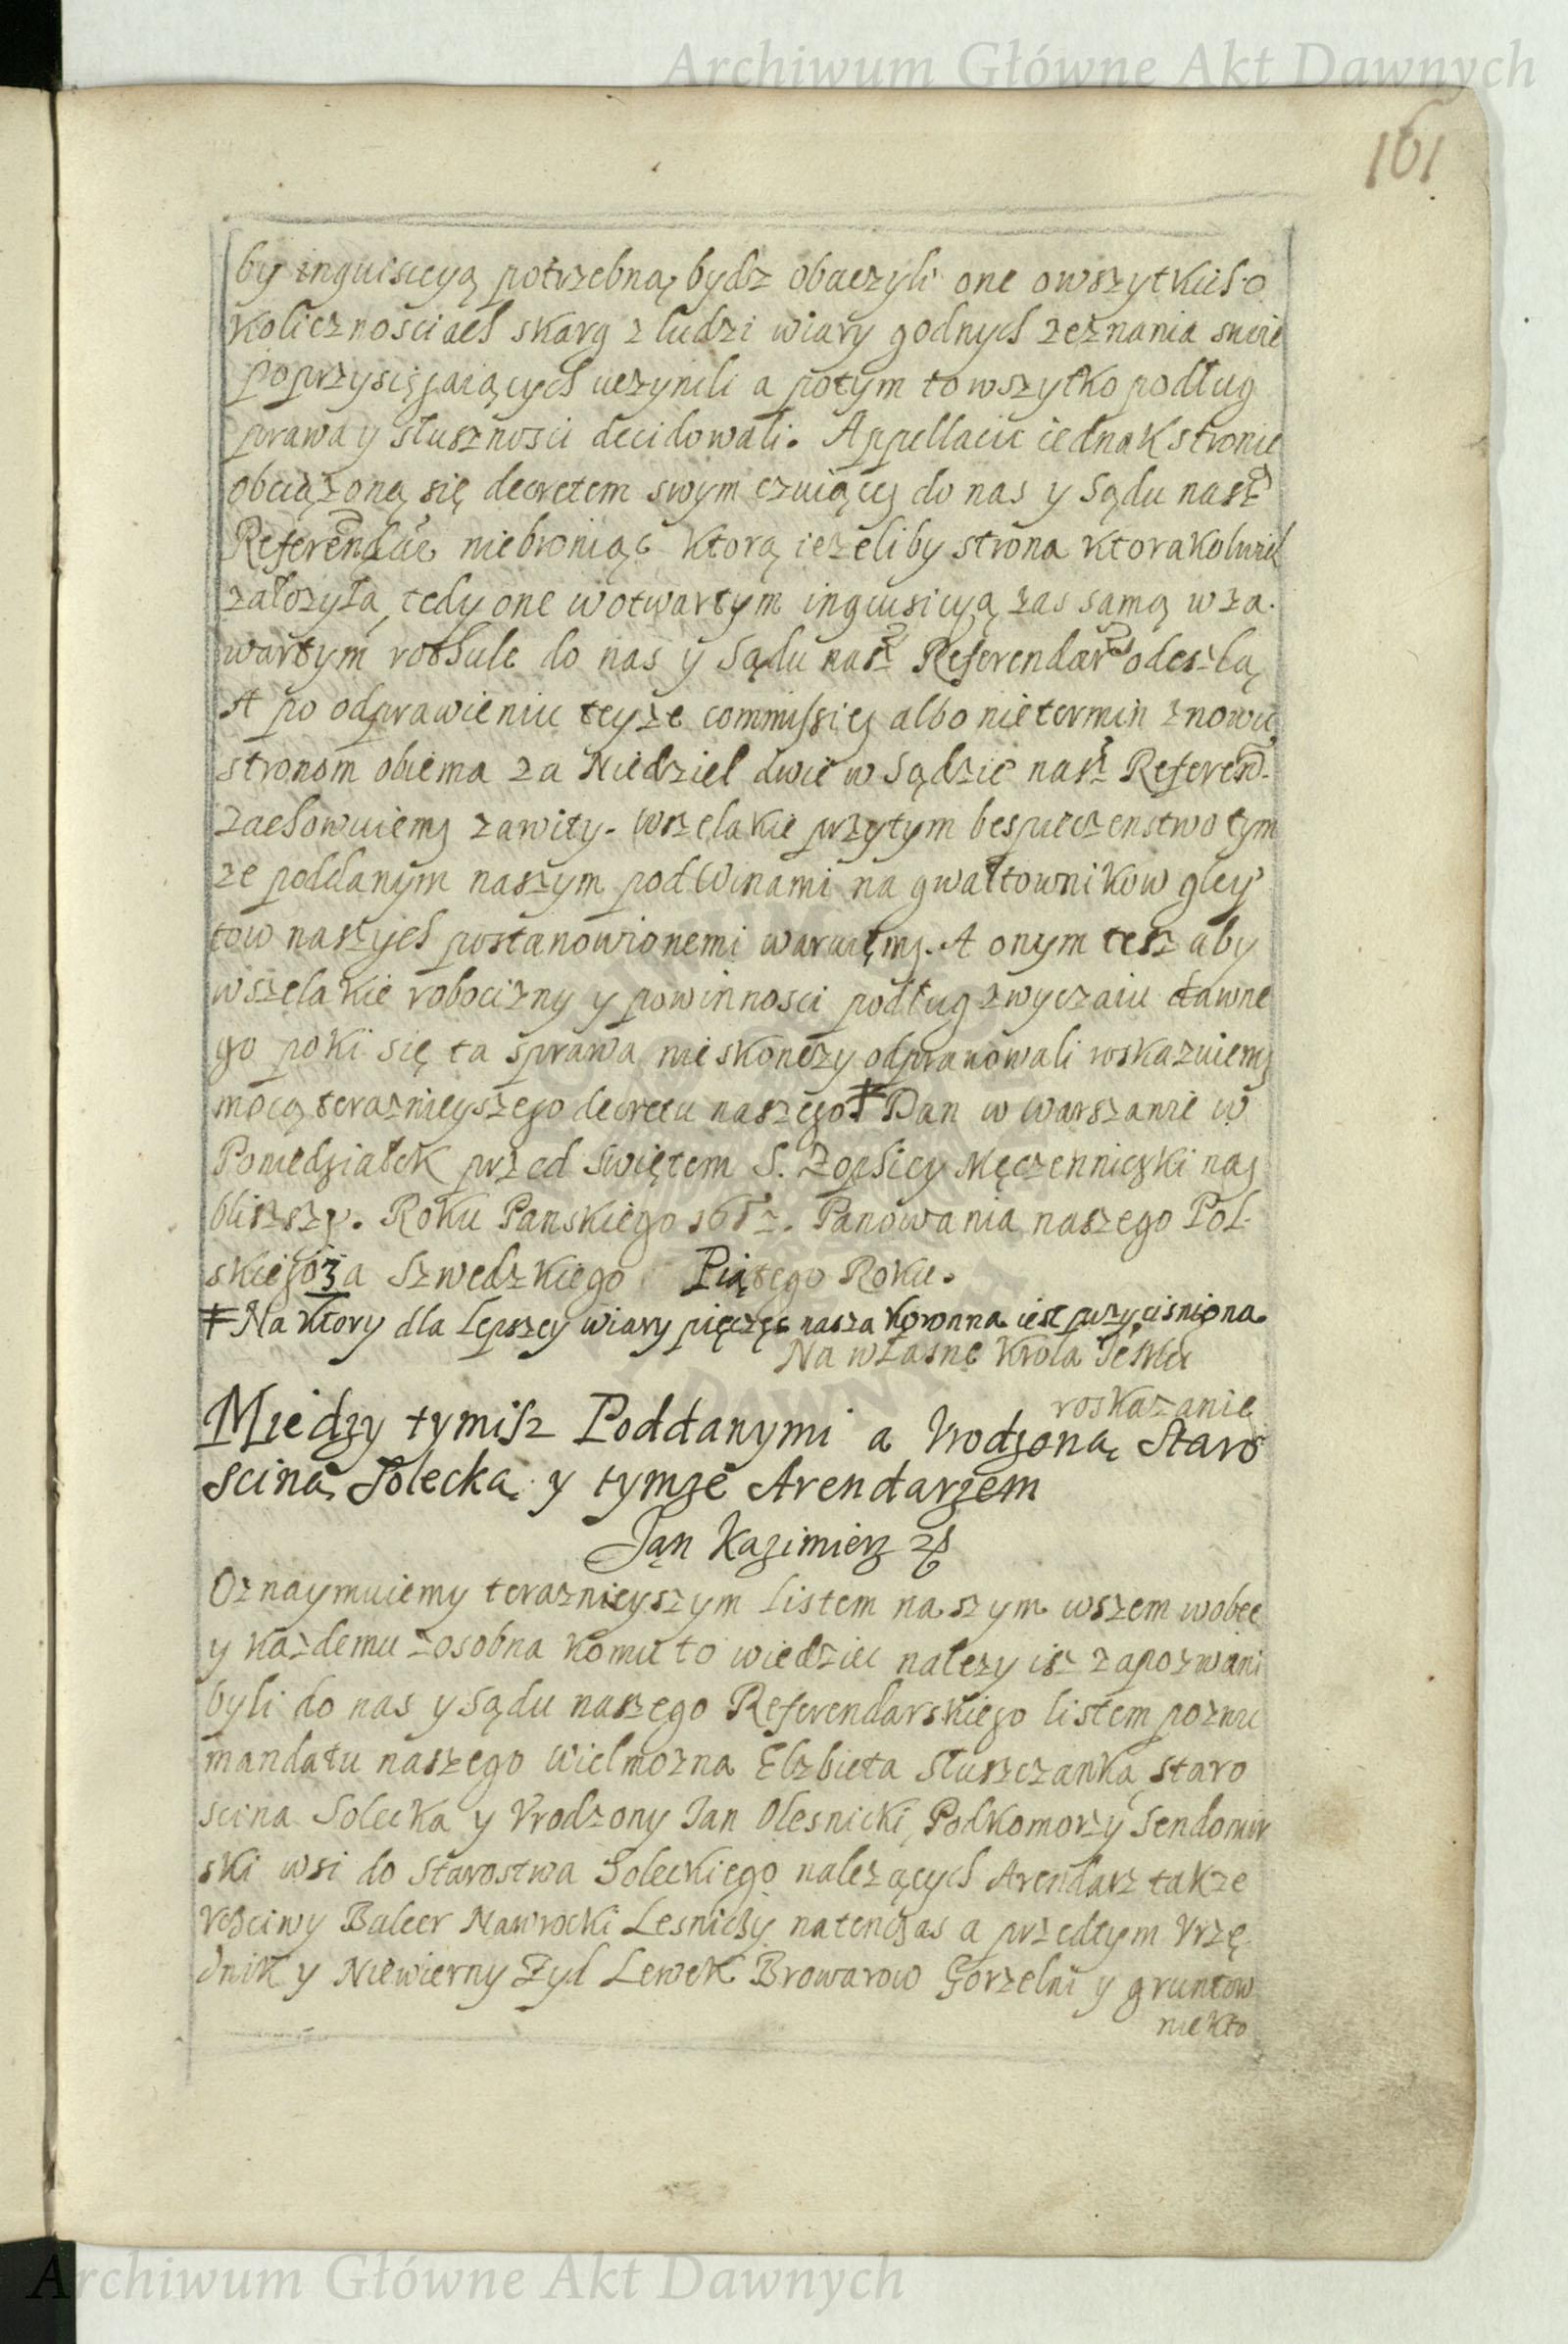 Archiwum Główne Akt Dawnych
161
by inquisicyą potrzebną bydz obaczyli one owszytkich o
kolicznosciach skarg z ludzi wiary godnych zeznania swoie
poprzysięgaiących uczynili a potym to wszytko podług
prawa y słusznosci decidowali. Appellacii iednak stronie
obciążoną się decretem swym czuiący do nas y Sądu nasze
Referendar niebroniąc ktorą ieżeliby strona ktorakolwiek
założyła, tedy one wotwartym inquisicyą zas samą wza-
wartym rothule do nas y Sądu nasz Referendar odeszlą
A po odprawieniu teyże commissiey albo nie termin znowu
stronom obiema za Niedziel dwie w Sądzie nasz Referen-
zachowuiemy zawity. Wszelakie przytym bespieczenstwo tym
że poddanym naszym pod Winami na gwałtownikow gley
tow naszych postanowionemi waruiemy. A onym tesz aby
wszelakie robocizny y powinnosci podług zwyczaiu dawne
go poki się ta sprawa nieskonczy odprawowali roskazuiemy
mocą teraznieyszego decretu naszego ‡ Dan w Warszawie w
Poniedziałek przed Swiętem S. Zophiey Męczenniczki nay
bliższy. Roku Panskiego 1652. Panowania naszego Pol-
skiego 3 a Szwedzkiego Piątego Roku.
‡ Na ktory dla lepszey wiary pieczęc nasza koronna iest przycisniona
Na własne Krola Je Mci
roskazanie
Miedzy tymisz Poddanymi a Vrodzoną Staro
scina Solecka y tymze Arendarzem
Jan Kazimierz
Oznaymuiemy teraznieyszym listem naszym wszem wobec
y każdemu zosobna komu to wiedziec należy isz zapozwani
byli do nas y Sądu naszego Referendarskiego listem pozwu
mandatu naszego Wielmożna Elżbieta Słuszczanka, staro
scina Solecka y Vrodzony Jan Olesnicki, Podkomorzy Sendomir
ski wsi do Starostwa Soleckiego należących Arendarz także
Vczciwy Balcer Nawrocki Lesniczy natenczas a przedtym Vrzę
dnik y Niewierny Żyd Lewek Browarow Gorzelni y gruntow
niekto
Archiwum Główne Akt Dawnych